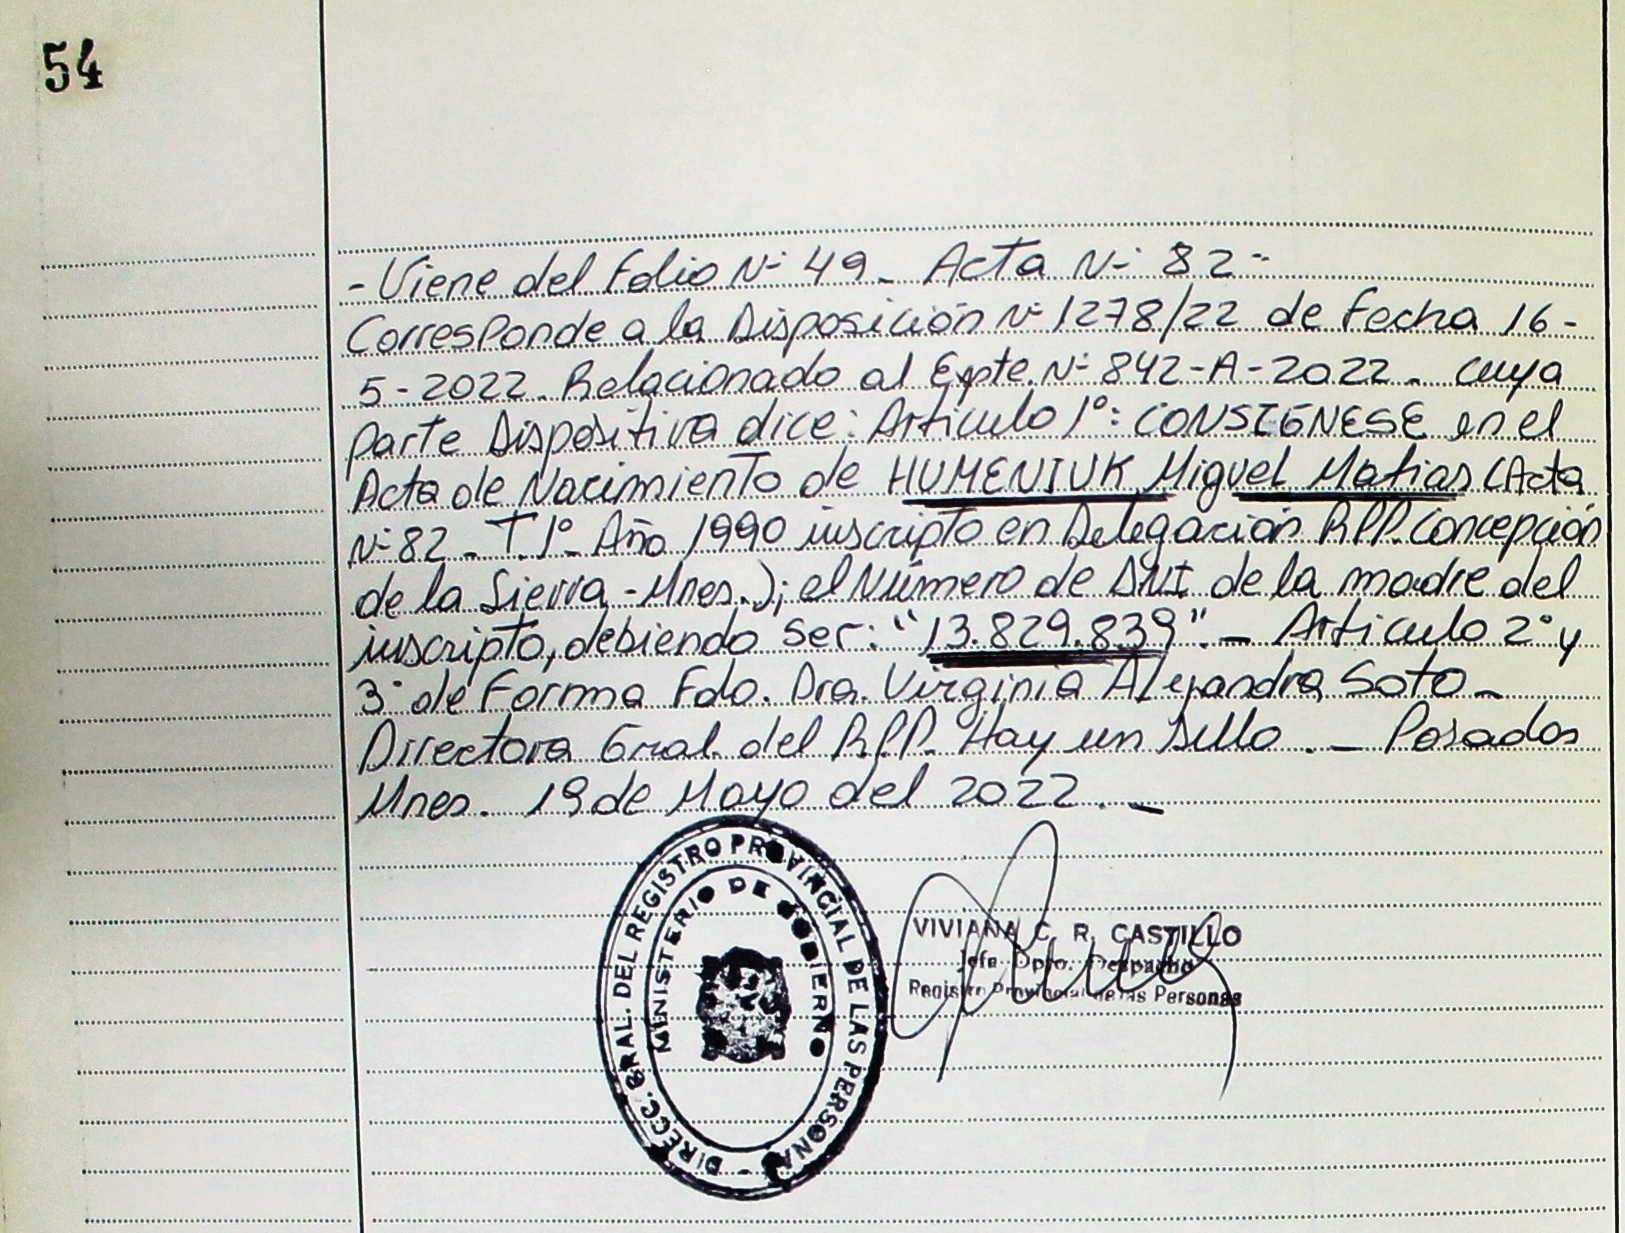 54
- Viene del Folio Nº 49 - Acta Nº 82 -
Corresponde a la Disposición Nº 1278/22 de Fecha 16-
5-2022. Relacionado al Expte. Nº 842-A-2022 - cuya
Parte Dispositiva dice: Articulo 1º: CONSIGNESE en el
Acta de Nacimiento de HUMENIUK Miguel Matias (Acta
Nº 82 - T. 1º - Año 1990 inscripto en Delegación RPP. Concepción
de la Sierra - Mnes.); el Número de DNI de la madre del
inscripto, debiendo ser: "13.829.839" - Articulo 2º y
3º de Forma Fdo. Dra. Virginia Alejandra Soto -
Directora Gral. del R.P.P. Hay un Sello. - Posadas
Mnes. 19 de Mayo del 2022. -
DIRECC. GRAL. DEL REGISTRO PROVINCIAL DE LAS PERSONAS -
MINISTERIO DE GOBIERNO
VIVIANA C. R. CASTILLO
Jefa Dpto. Despacho
Registro Provincial de las Personas